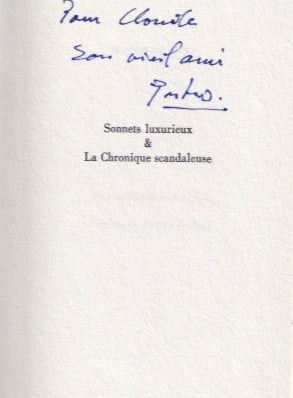 Pour Claude
Son vieil ami
Sonnets luxurieux
&
La Chronique scandaleuse